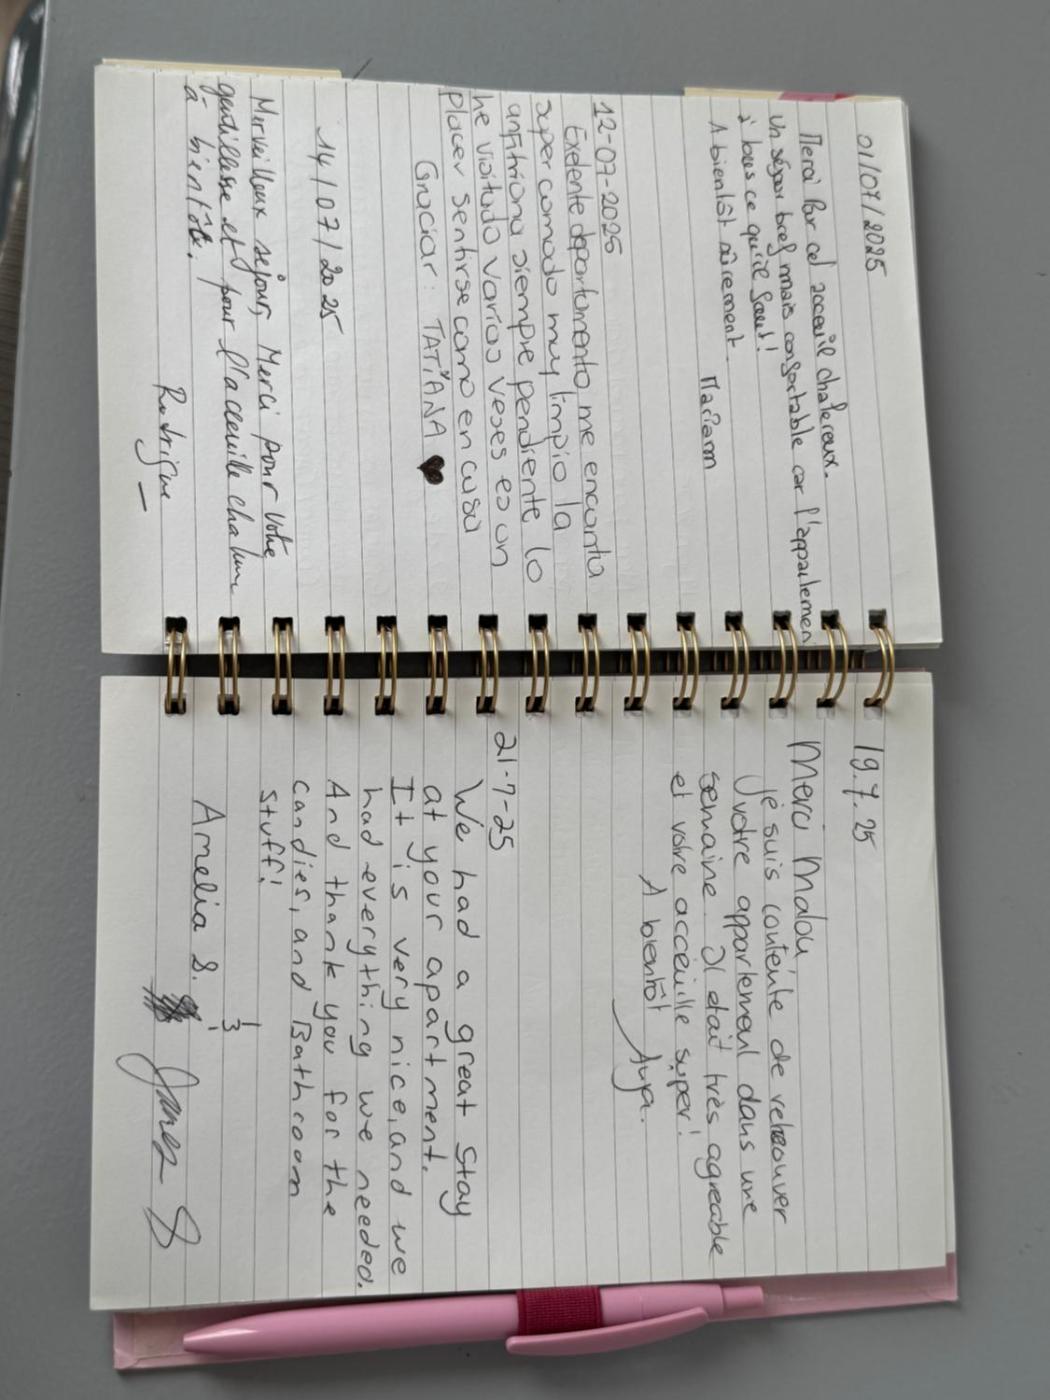 01/07/2025
Merci Par cet acceuil chalereux.
Un séjour bref mais confortable car l'appartemen
à tous ce qu'il faut!
A bientôt sûrement.
Mariam
12-07-2025
Exelente departamento, me encanta
super comodo muy limpio la
anfitriona siempre pendiente lo
he visitado varias veses es un
placer sentirse como en casa
Gracias: TATIANA ♥
14/07/2025
Merveilleux séjour, Merci pour votre
gentillesse et pour l'acceuille chaleure
à bientôt.
Rodrigue
19.7.25
Merci Malou
je suis contente de retrouver
votre appartement dans une
semaine. Il était très agreable
et votre acceuille super!
A bientôt
Aya.
21-7-25
We had a great stay
at your apartment.
It is very nice, and we
had everything we needed.
And thank you for the
candies, and Bathroom
stuff!
Amelia S.
James S